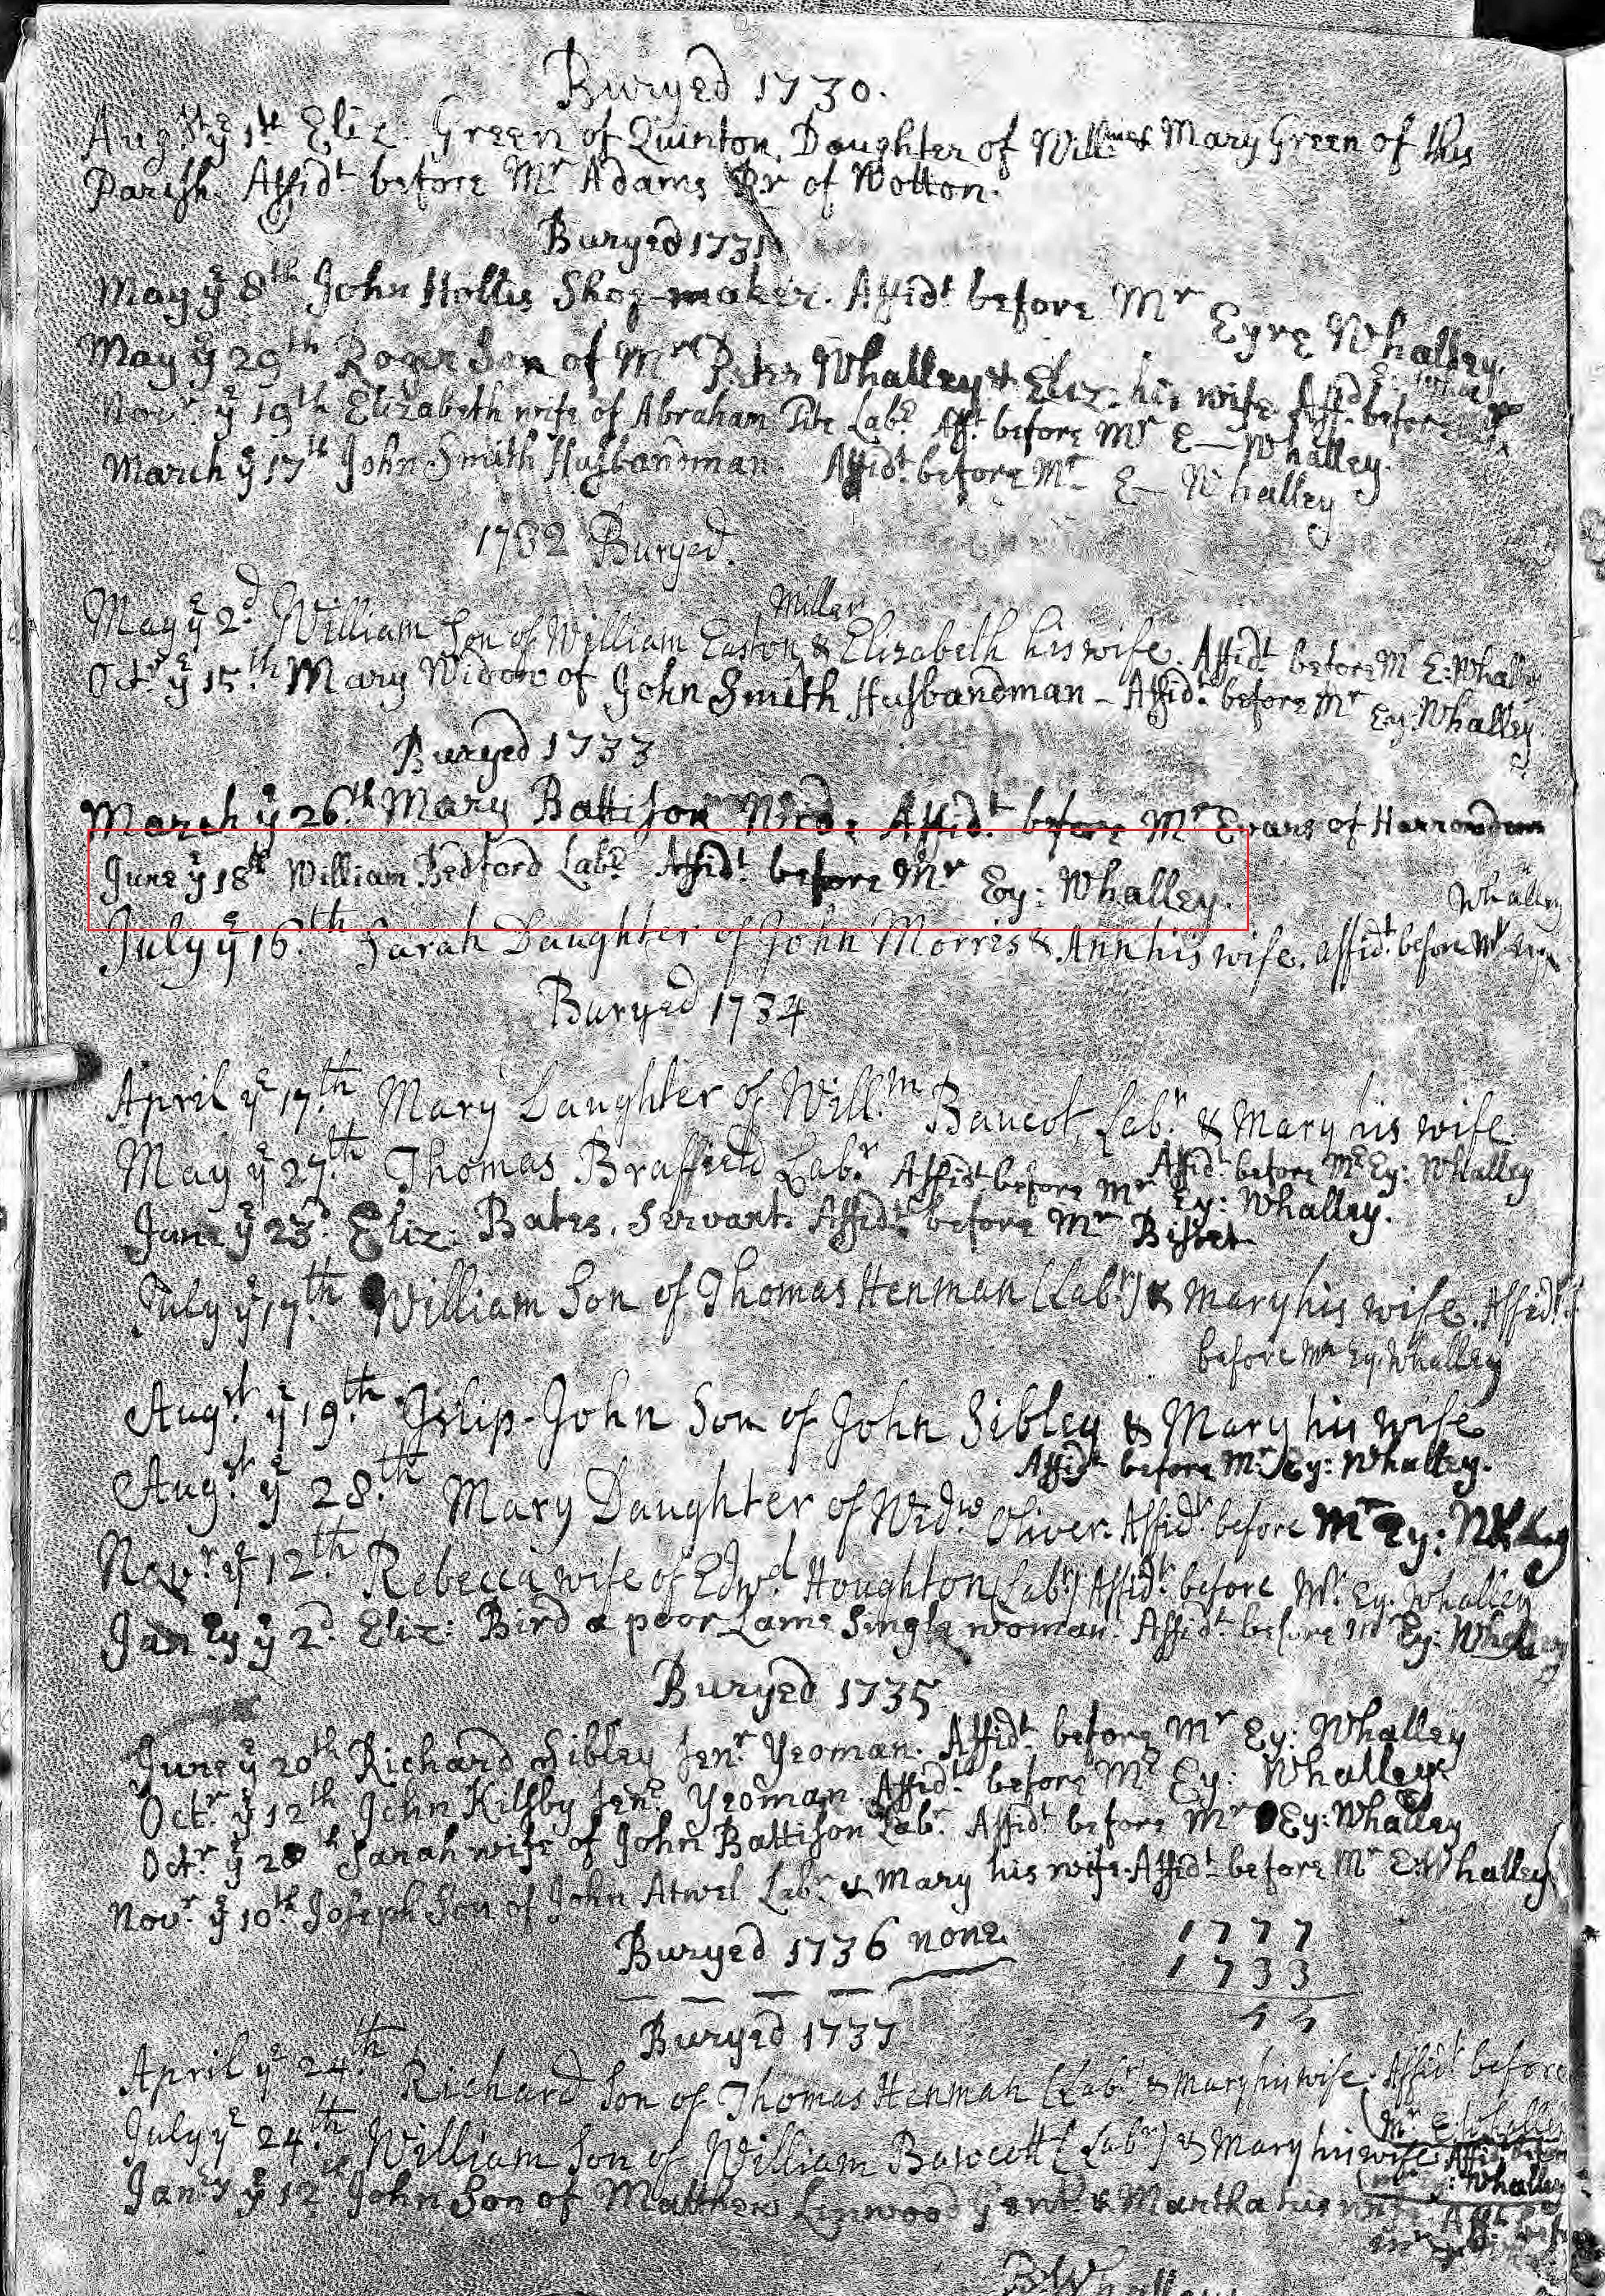 Buryed 1730.
Augst ye 1st Eliz: Green of Quinton, Daughter of Willm & Mary Green of this
Parish. Affidt before Mr Adams of Wotton.
Buryed 1731
May ye 8th John Hollis Shoe-maker. Affidt before Mr Eyre Whalley.
May ye 29th Roger Son of Mr Peter Whalley & Eliz: his wife. Affidt before
Novr ye 19th Elizabeth wife of Abraham Labr Afft before Mr E— Whalley.
March ye 17th John Smith Husbandman. Affidt before Mr E— Whalley
1732 Buryed.
Miller
May ye 2d William Son of William Easton & Elizabeth his wife. Affidt before Mr E: Whalley
Octr ye 15th Mary Widow of John Smith Husbandman - Affidt before Mr Ey: Whalley.
Buryed 1733
March ye 26th Mary Battison Affidt before Mr Evans of
June ye 18th William Bedford Labr Affidt before Mr Ey: Whalley.
Whalley
July ye 16th Sarah Daughter of John Morris & Ann his wife. affidt before Mr Ey
Buryed 1734
April ye 17th Mary Daughter of Willm Baucot, Labr & Mary his wife.
Affidt before Mr Ey: Whalley
May ye 27th Thomas Braffield Labr Affidt before Mr Ey: Whalley.
June ye 23d Eliz: Bates, Servant. Affidt before Mr Bisset
July ye 17th William Son of Thomas Henman (Labr) & Mary his wife. Affidt
before Mr Ey. Whalley
Augst ye 19th Islip-John Son of John Sibley & Mary his wife
Affidt before Mr Ey: Whalley.
Augst ye 28th Mary Daughter of Widw Oliver. Affidt before Mr Ey:
Novr ye 12th Rebecca wife of Edwd Houghton (Labr) Affidt before Mr Ey. Whalley
Janry ye 2d Eliz: Bird a poor Lame Single woman. Affidt before Mr Ey: Whalley
Buryed 1735
June ye 20th Richard Sibley Senr Yeoman. Affidt before Mr Ey: Whalley
Octr ye 12th John Kilsby Senr Yeoman. Affidt before Mr Ey: Whalley
Octr ye 28th Sarah wife of John Battison Labr Affidt before Mr Ey: Whalley
Novr ye 10th Joseph Son of John Atwel Labr & Mary his wife. Affidt before Mr E: Whalley
Buryed 1736 none.
1777
1733
Buryed 1737
April ye 24th Richard Son of Thomas Henman (Labr & Mary his wife. Affidt before
Mr E: Whalley
July ye 24th William Son of William Bawcott (Labr) & Mary his wife. Affidt before
Ey: Whalley
Janry ye 12 John Son of Matthew Linwood Gent & Martha his wife